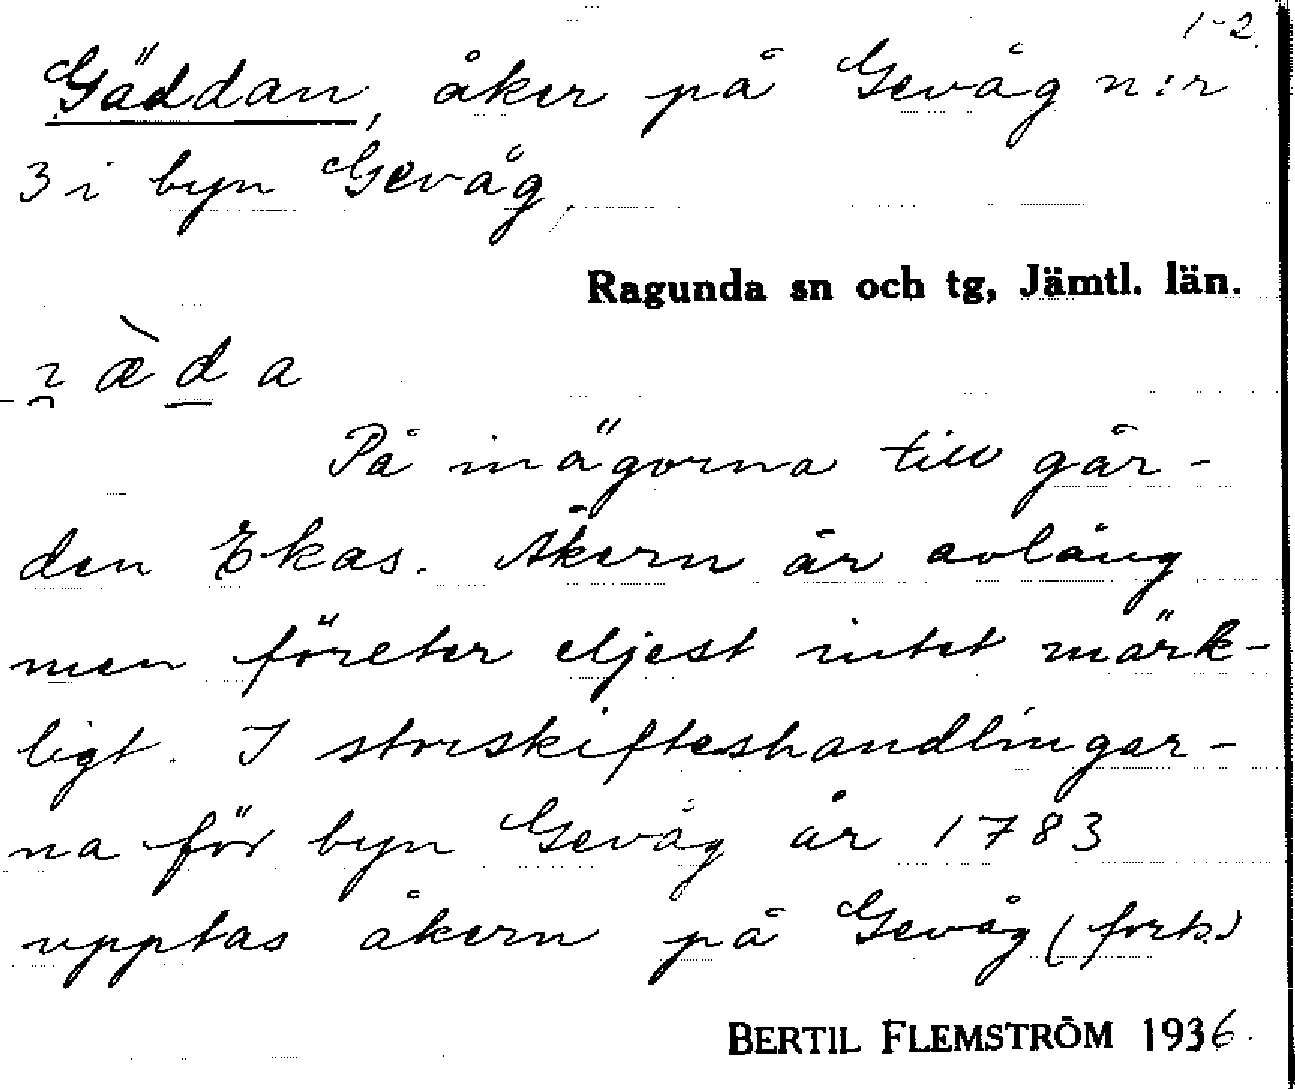 1-2.
Gäddan, åker på Gevåg n:r
3 i byn Gevåg,
Ragunda sn och tg, Jämtl. län.
På inägorna till går-
den Ekas. Åkern är avlång
men företer eljest intet märk-
ligt. I storskifteshandlingar-
na för byn Gevåg år 1783
upptas åkern på Gevåg (forts.)
BERTIL FLEMSTRÖM 1936.